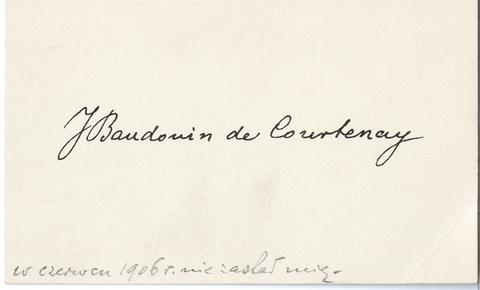 J Baudouin de Courtenay
w czerwcu 1906 r. nie zastał mię.